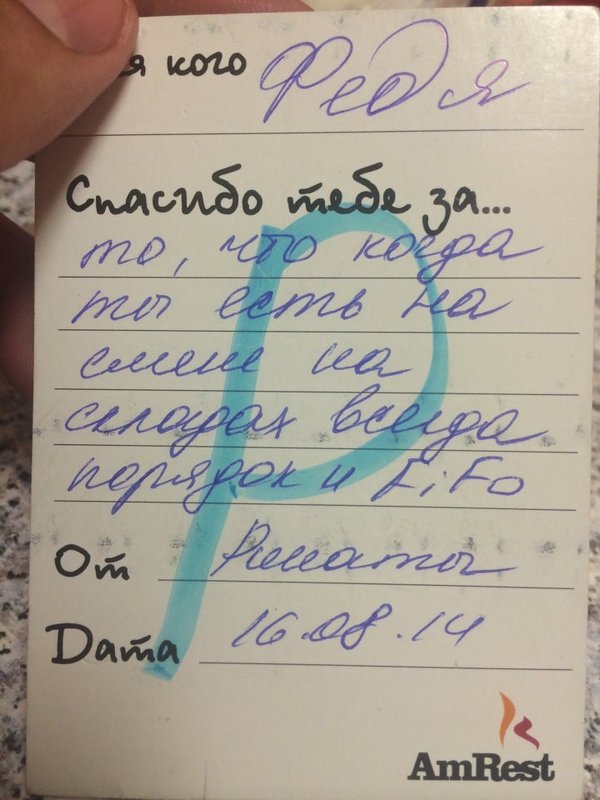 я кого Федя
Спасибо тебе за...
то, что когда
ты есть на
смене на
складах всегда
порядок и FiFo
От Ринаты
Дата 16.08.14
AmRest